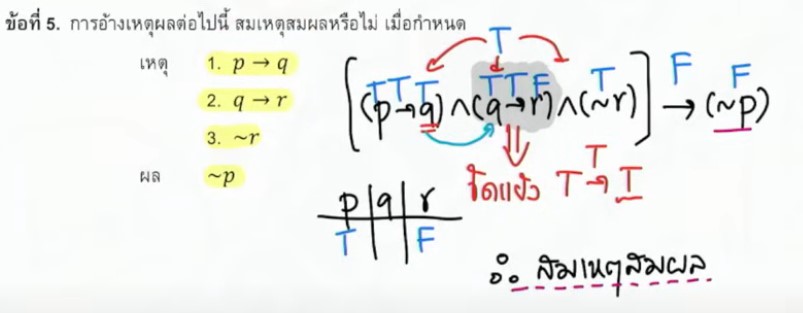 ข้อที่ 5. การอ้างเหตุผลต่อไปนี้ สมเหตุสมผลหรือไม่ เมื่อกำหนด
เหตุ 1. p → q
2. q → r
3. ~r
ผล ~p
T
T T T T T F T F F
[(p→q)∧(q→r)∧(~r)] → (~p)
T
ขัดแย้ง T → T
p q r
T F
∴ สมเหตุสมผล